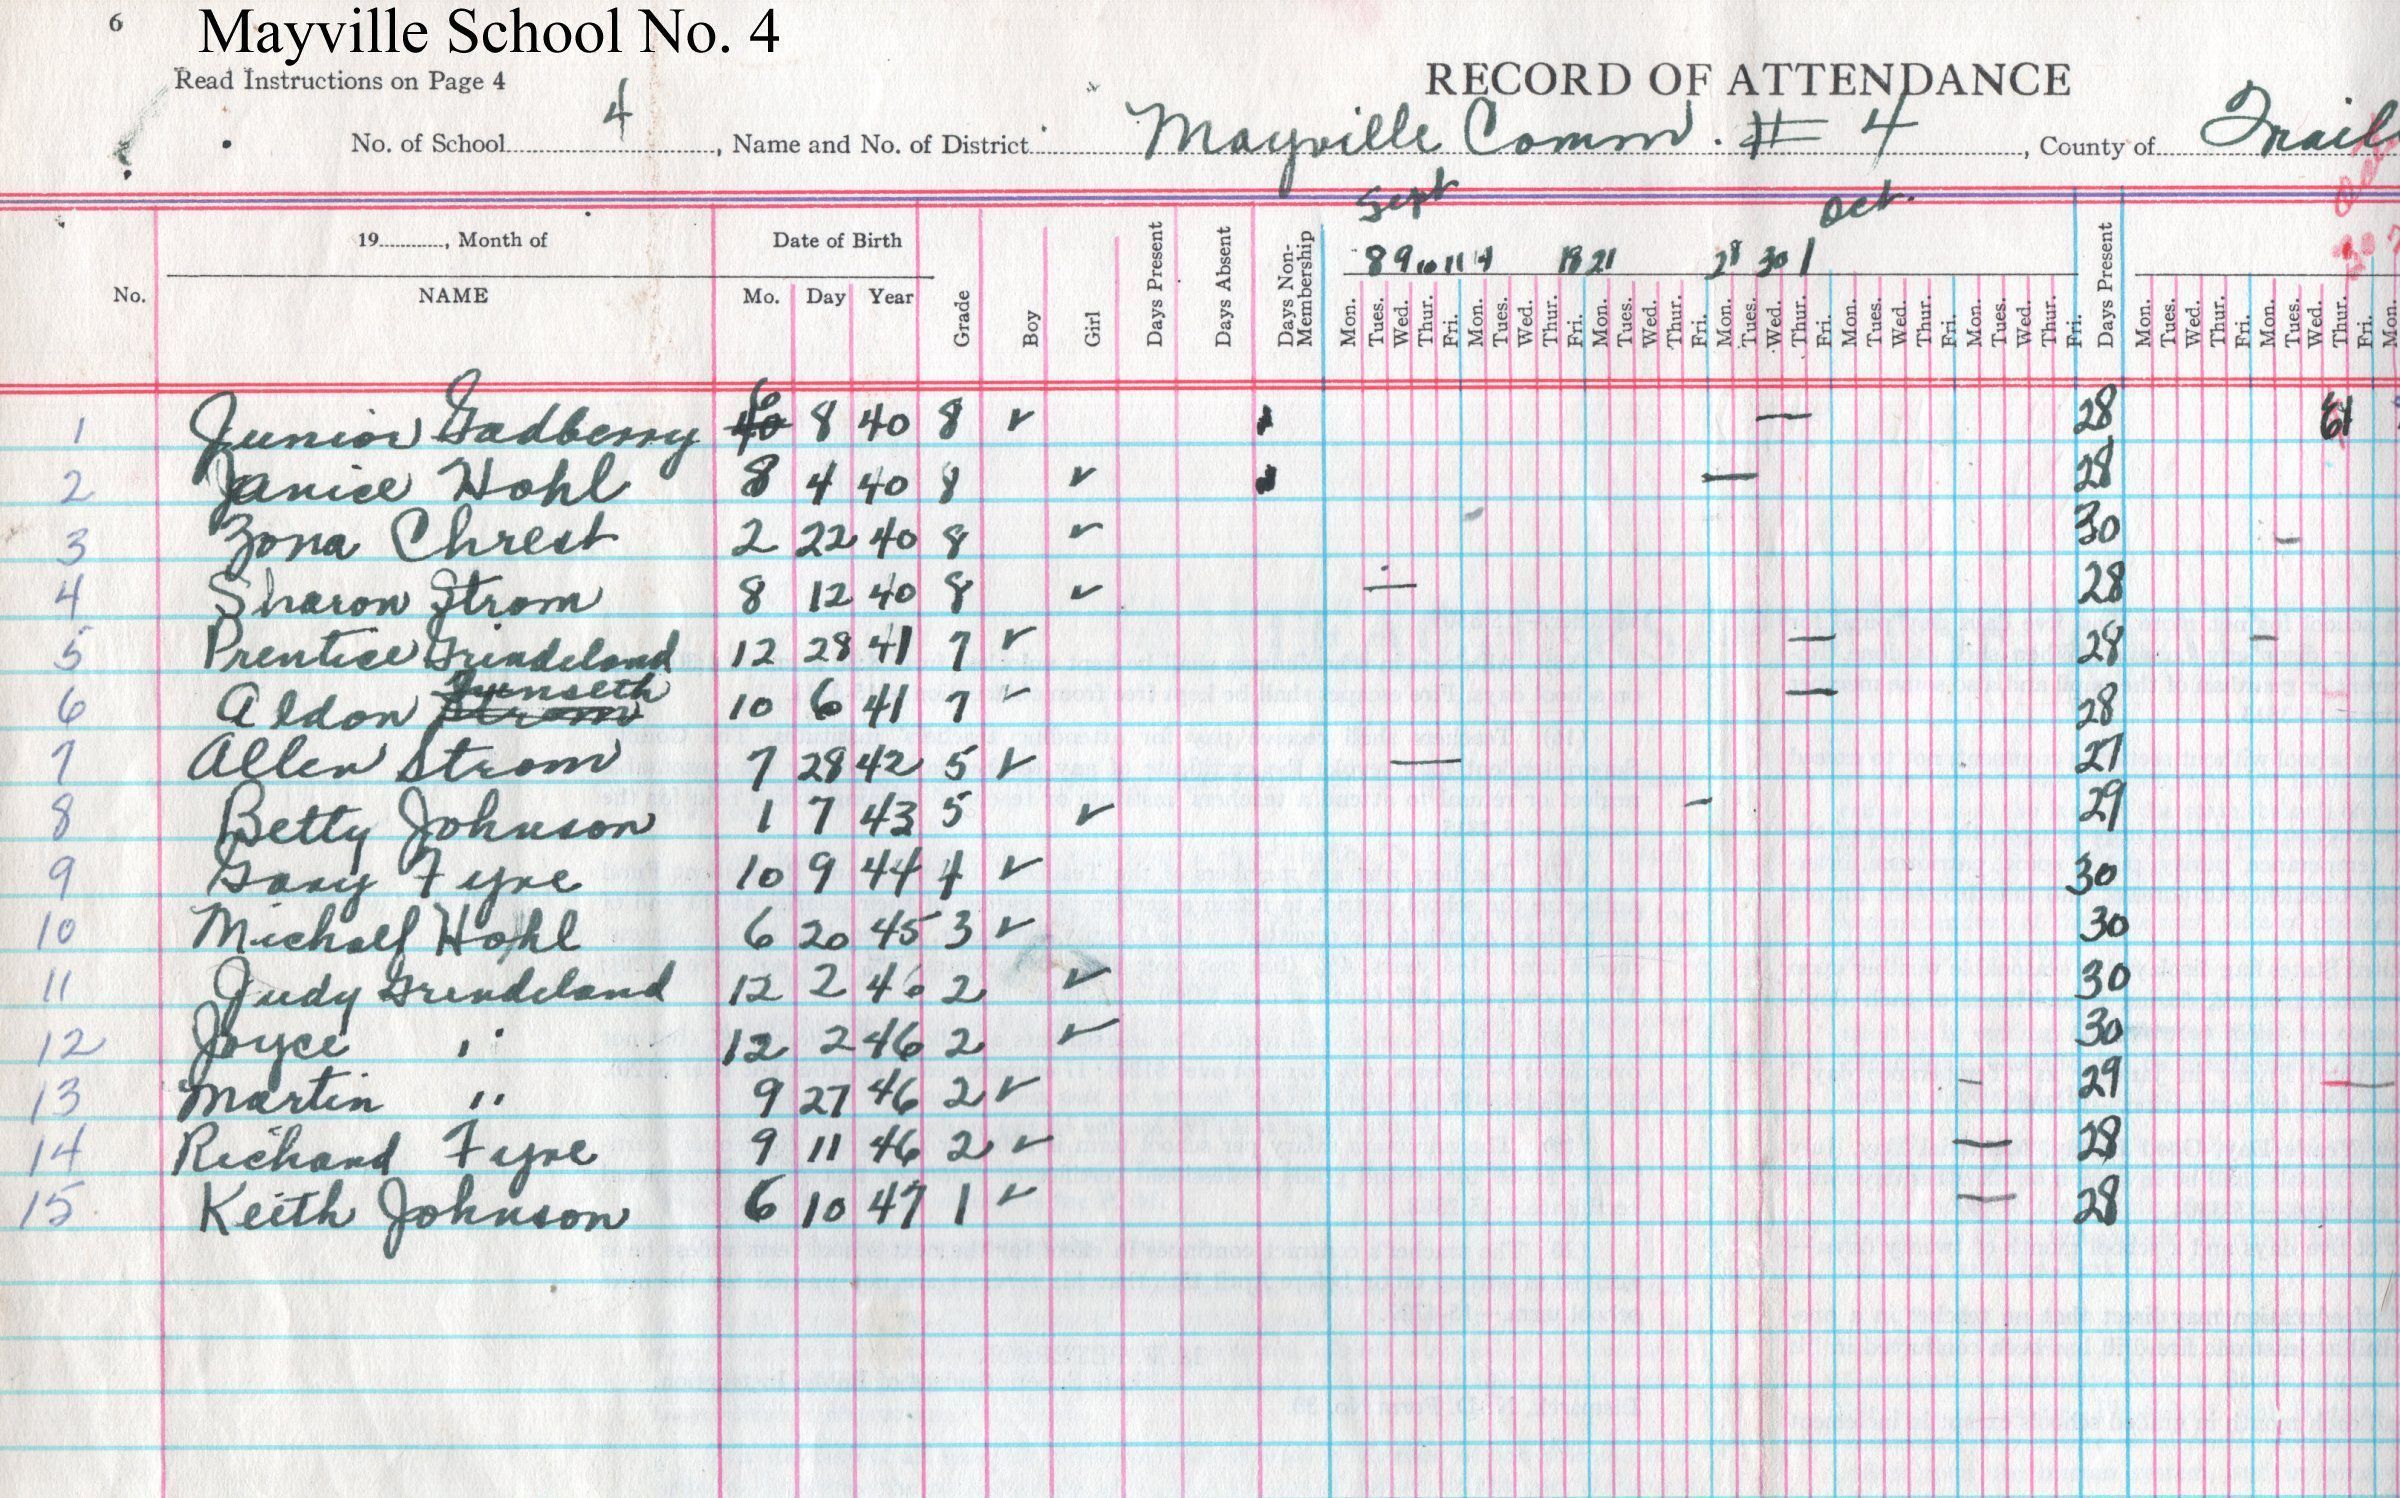 6 Mayville School No. 4
Read Instructions on Page 4
RECORD OF ATTENDANCE
No. of School 4, Name and No. of District Mayville Comm. # 4, County of Traill
Sept Oct.
19........, Month of Date of Birth
8 9 10 11 14 18 21 28 30 1
No. NAME Mo. Day Year Grade Boy Girl Days Present Days Absent Days Non-Membership Mon. Tues. Wed. Thur. Fri. Mon. Tues. Wed. Thur. Fri. Mon. Tues. Wed. Thur. Fri. Mon. Tues. Wed. Thur. Fri. Mon. Tues. Wed. Thur. Fri. Mon. Tues. Wed. Thur. Fri. Days Present Mon. Tues. Wed. Thur. Fri. Mon. Tues. Wed. Thur. Fri. Mon.
1 Junior Gadberry 6 8 40 8 ✓ — 28
2 Janice Hohl 8 4 40 8 ✓ — 28
3 Zona Chrest 2 22 40 8 ✓ 30 -
4 Sharon Strom 8 12 40 8 ✓ — 28
5 Prentice Grindeland 12 28 41 7 ✓ — 28 -
6 Aldon Jynseth 10 6 41 7 ✓ — 28
7 Allen Strom 7 28 42 5 ✓ — 27
8 Betty Johnson 1 7 43 5 ✓ - 29
9 Gary Fyre 10 9 44 4 ✓ 30
10 Michael Hohl 6 20 45 3 ✓ 30
11 Judy Grindeland 12 2 46 2 ✓ 30
12 Joyce " 12 2 46 2 ✓ 30
13 Martin " 9 27 46 2 ✓ - 29 —
14 Richard Fyre 9 11 46 2 ✓ — 28
15 Keith Johnson 6 10 47 1 ✓ — 28